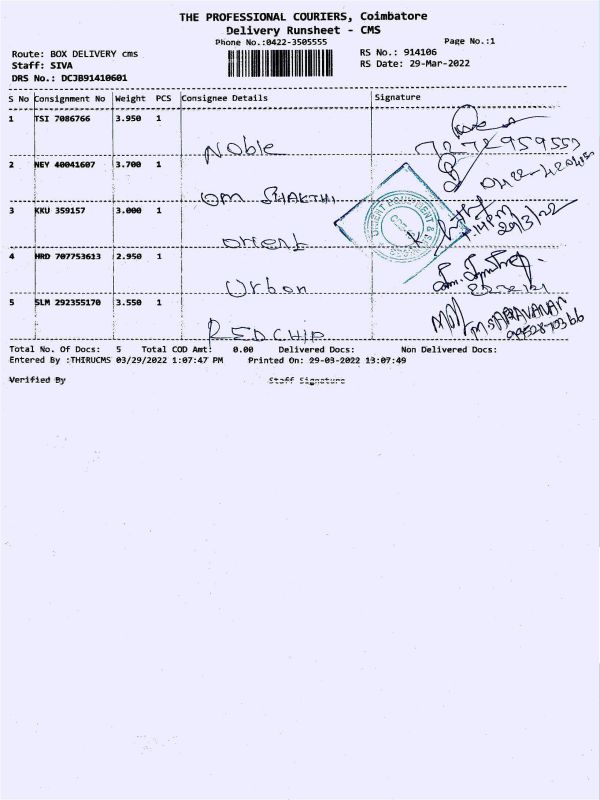 THE PROFESSIONAL COURIERS, Coimbatore
Delivery Runsheet - CMS
Phone No.:0422-3505555
Page No.:1
Route: BOX DELIVERY cms
RS No.: 914106
Staff: SIVA
RS Date: 29-Mar-2022
DRS No.: DCJB91410601
S No Consignment No Weight PCS Consignee Details Signature
1 TSI 7086766 3.950 1
Noble
2 NEY 40041607 3.700 1
OM SHAKTHI
3 KKU 359157 3.000 1
orient
4 HRD 707753613 2.950 1
Urban
5 SLM 292355170 3.550 1
M SARAVANAN
REDCHIP
Total No. Of Docs: 5 Total COD Amt: 0.00 Delivered Docs: Non Delivered Docs:
Entered By :THIRUCMS 03/29/2022 1:07:47 PM Printed On: 29-03-2022 13:07:49
Verified By Staff Signature